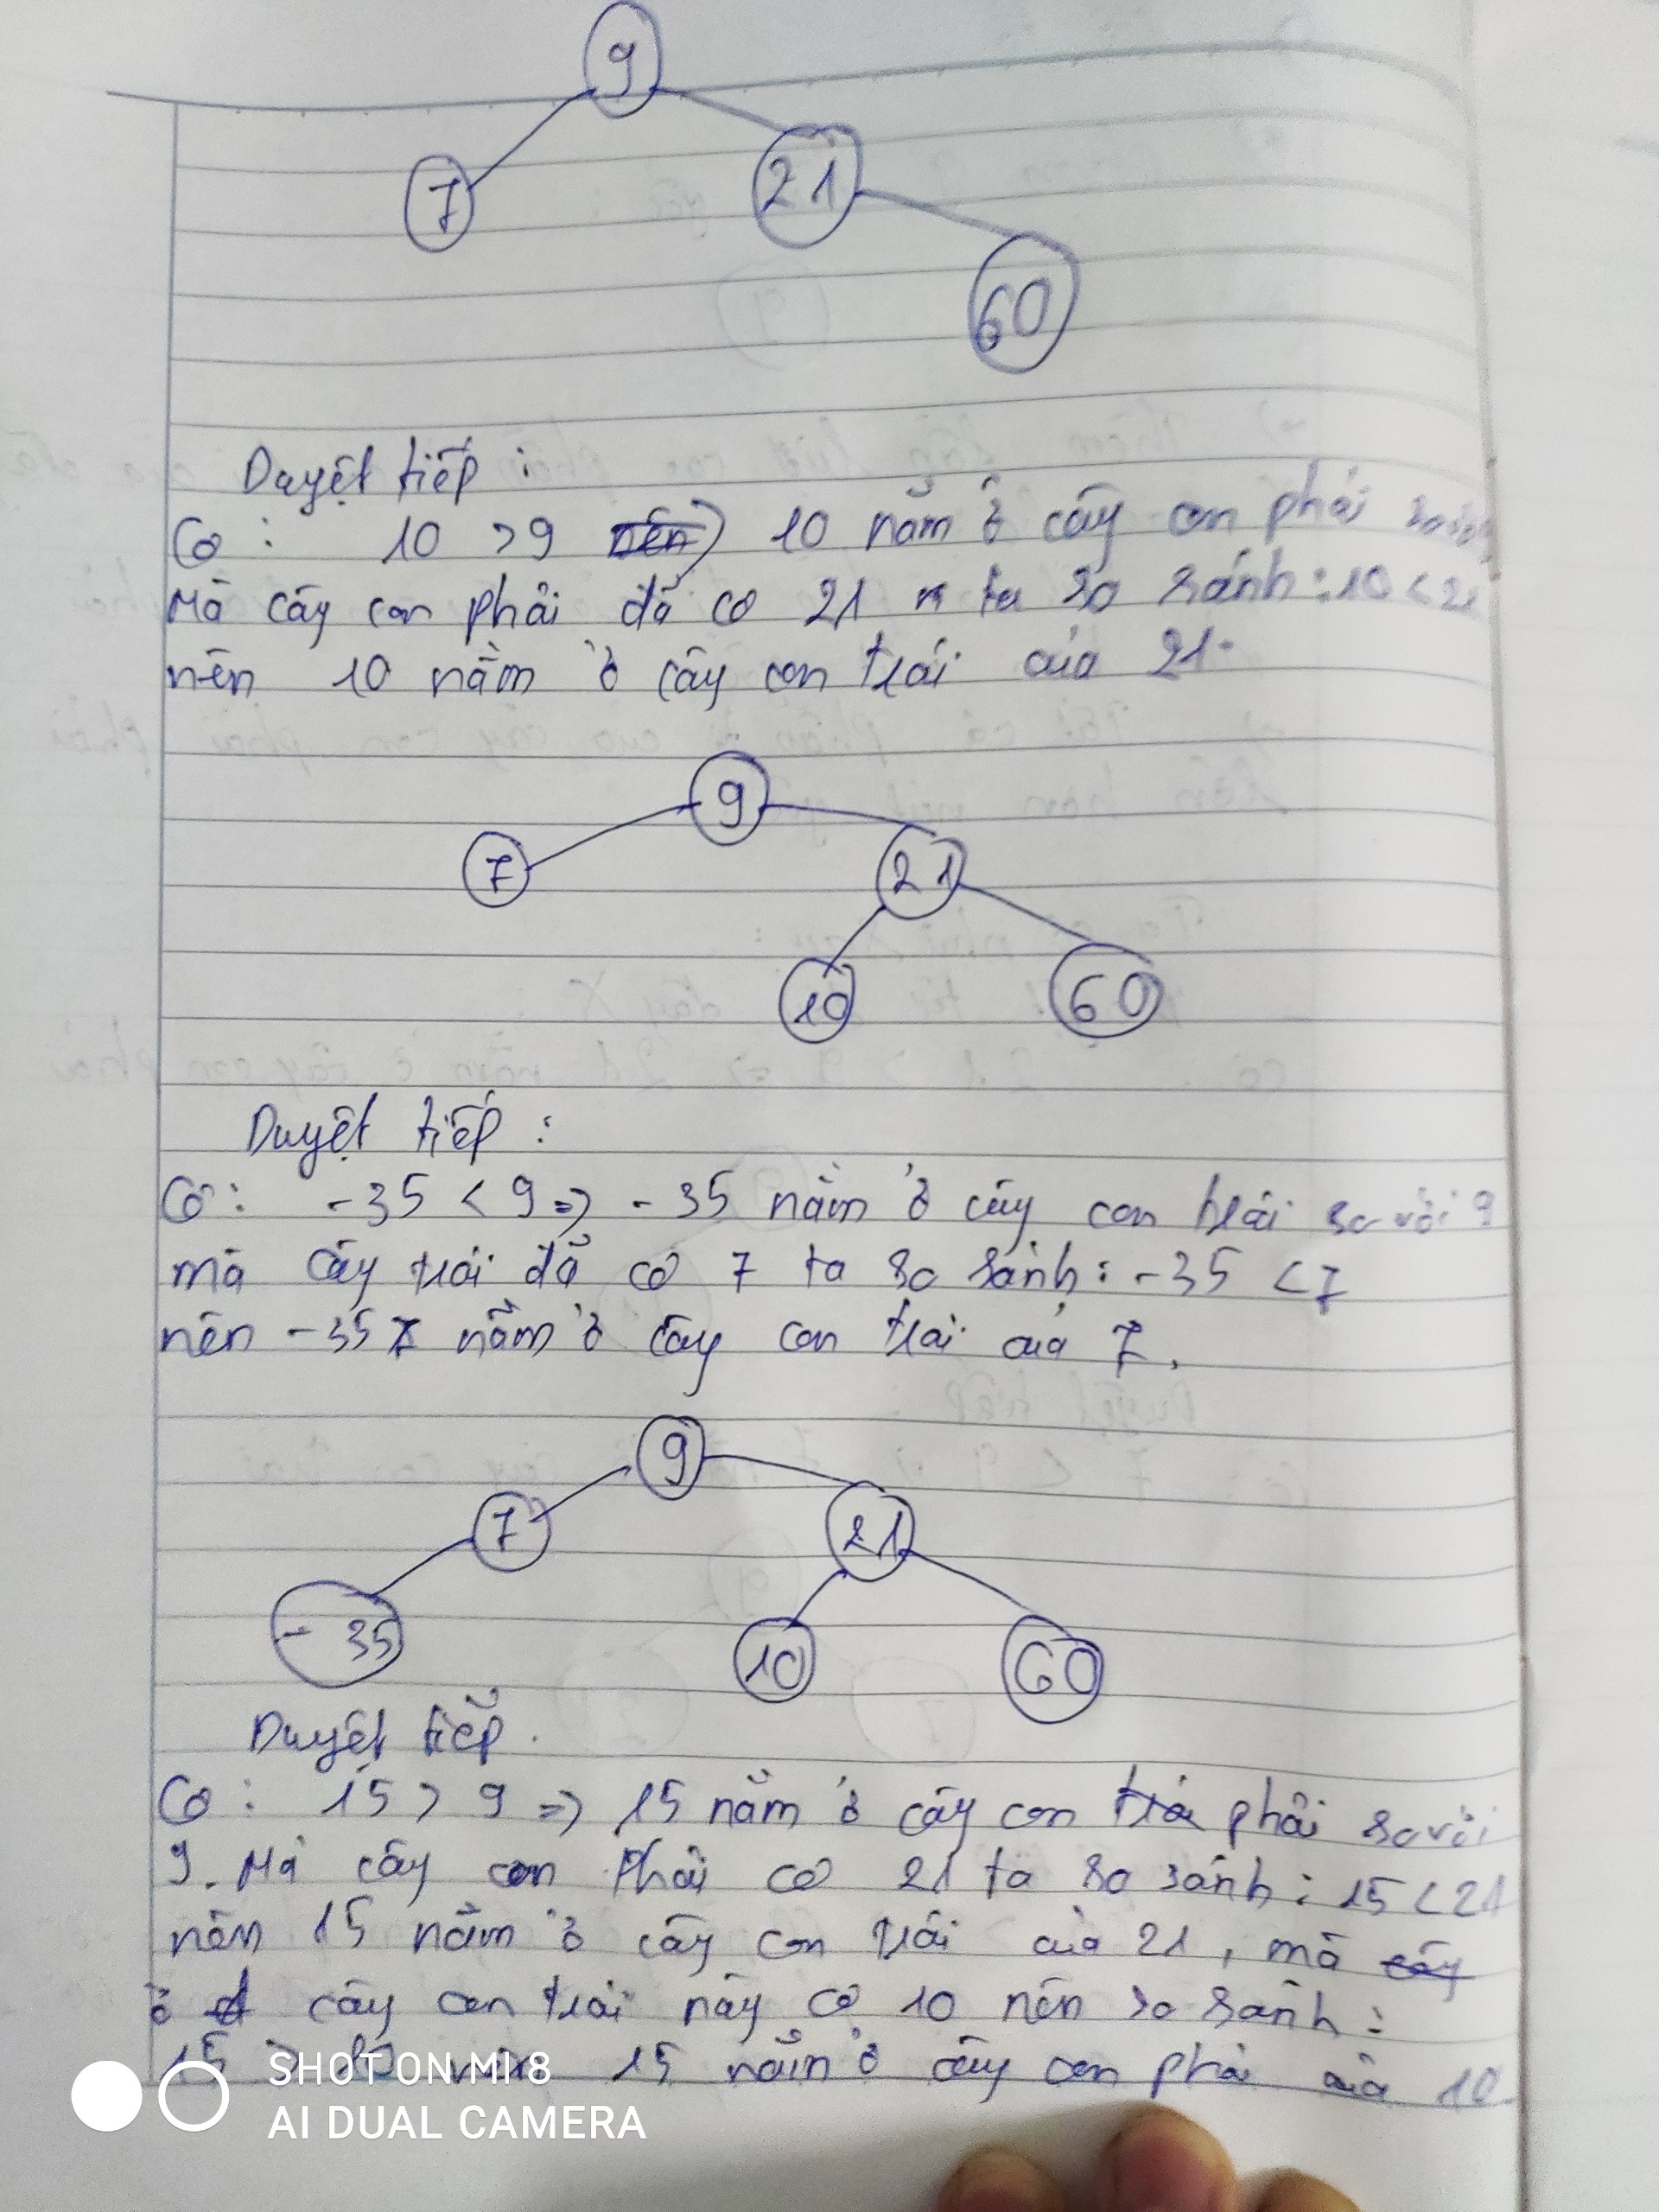 9
7
21
60
Duyệt tiếp :
Có : 10 > 9 10 nằm ở cây con phải
Mà cây con phải đã có 21 ta so sánh : 10 < 21
nên 10 nằm ở cây con trái của 21.
9
7
21
10
60
Duyệt tiếp :
Có : -35 < 9 => -35 nằm ở cây con trái so với 9
mà cây trái đã có 7 ta so sánh : -35 < 7
nên -35 nằm ở cây con trái của 7.
9
7
21
-35
10
60
Duyệt tiếp.
Có : 15 > 9 => 15 nằm ở cây con phải so với
9. Mà cây con phải có 21 ta so sánh : 15 < 21
nên 15 nằm ở cây con trái của 21, mà
ở cây con trái này có 10 nên so sánh :
15 > 10 nên 15 nằm ở cây con phải của 10
SHOT ON MI 8
AI DUAL CAMERA